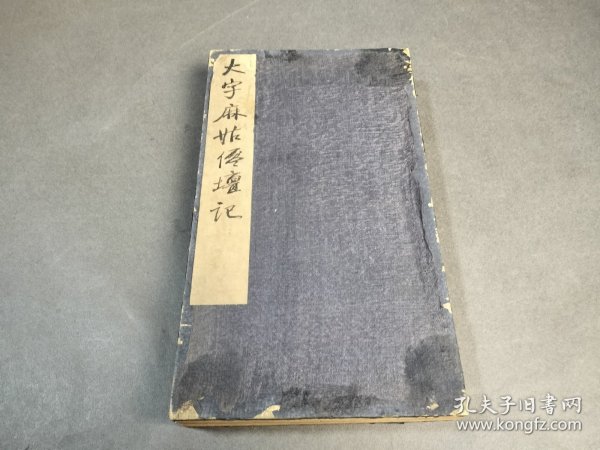 大字麻姑僊壇记
孔夫子旧書网
www.kongfz.com